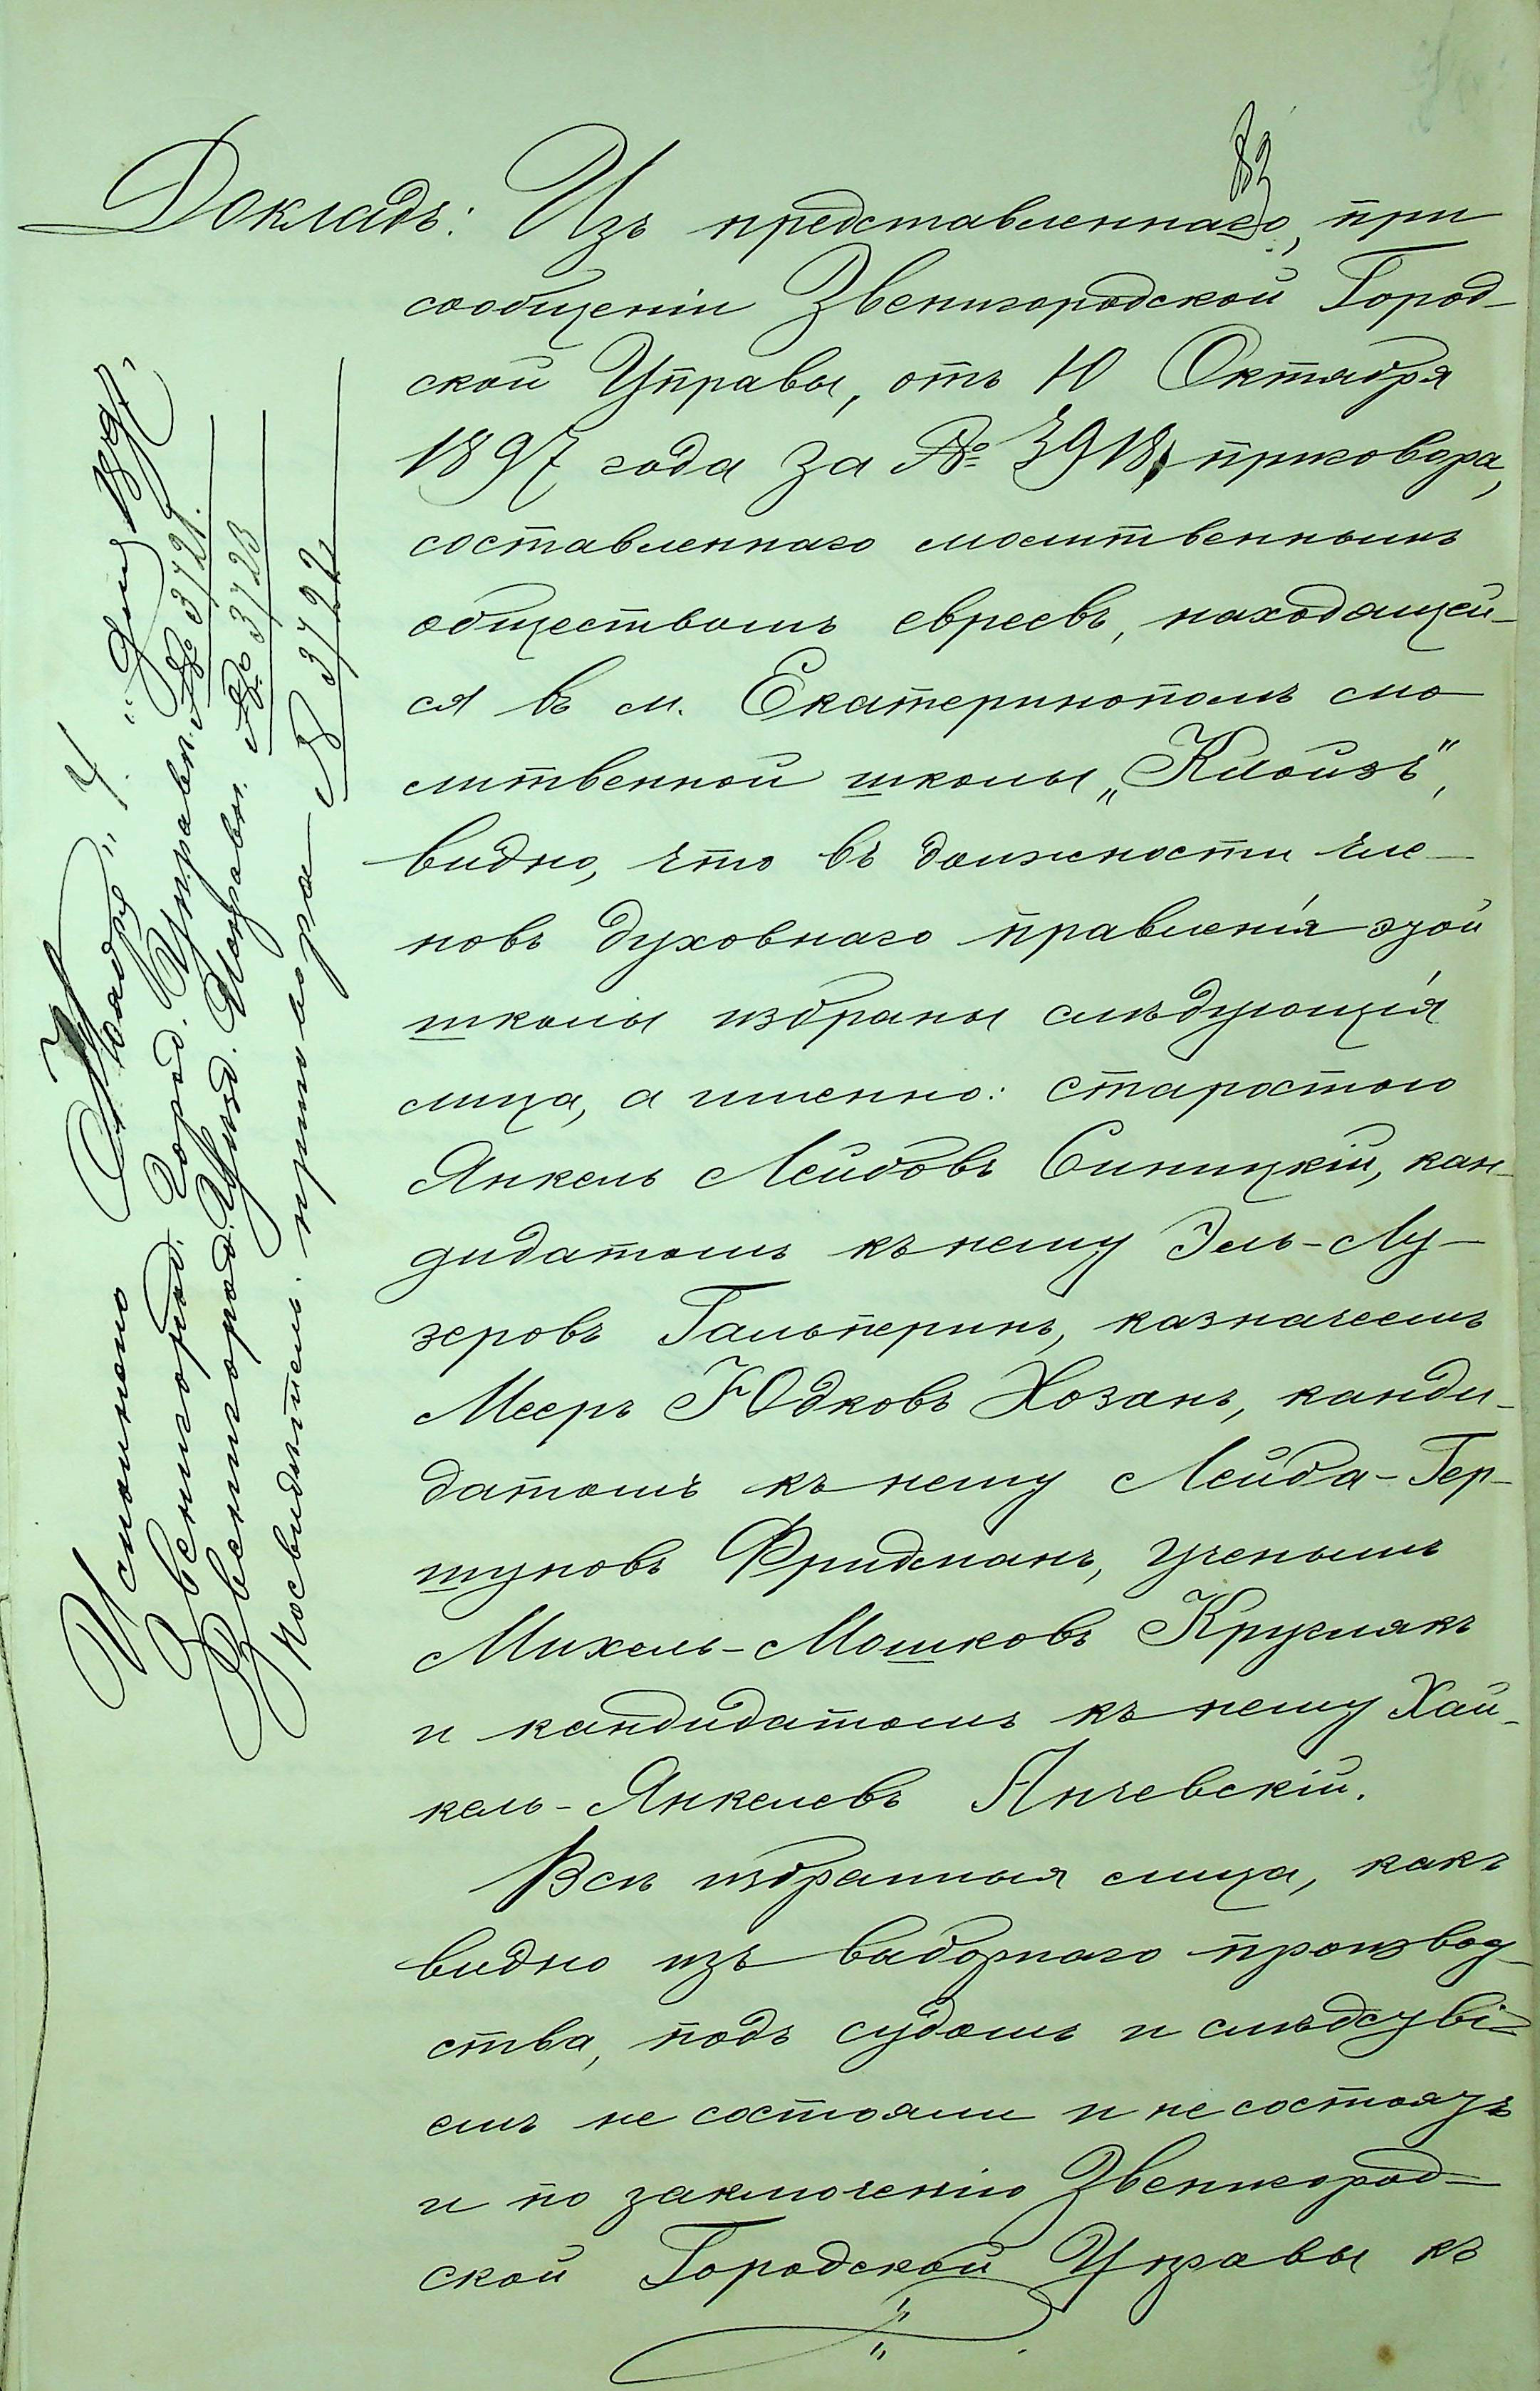 83
Докладъ: Изъ представленнаго, при
сообщеніи Звенигородской Город-
ской Управы, отъ 10 Октября
1897 года за № 3918, приговора,
составленнаго молитвеннымъ
обществомъ евреевъ, находящей-
ся въ м. Екатеринополь мо-
литвенной школы „Клойзъ",
видно, что въ должности чле-
новъ духовнаго правленія этой
школы избраны слѣдующія
лица, а именно: старостою
Янкель Лейбовъ Синицкій, кан-
дидатомъ къ нему Эль-Лу-
зеровъ Гальперинъ, казначеемъ
Мееръ Юдковъ Хозанъ, канди-
датомъ къ нему Лейба-Гер-
шуновъ Фридманъ, ученымъ
Михель-Мошковъ Круглякъ
и кандидатомъ къ нему Хай-
кель-Янкелевъ Янчевскій.
Всѣ избранныя лица, какъ
видно изъ выборнаго производ-
ства, подъ судомъ и слѣдстві-
емъ не состояли и не состоятъ
и по заключенію Звенигород-
ской Городской Управы къ
Исполнено Ноября „4" дня 1897 г.
Звенигород. Город. Управѣ № 3721.
Звенигород. Уѣзд. Исправн. № 3723
Посвидѣтел. приговора № 3722